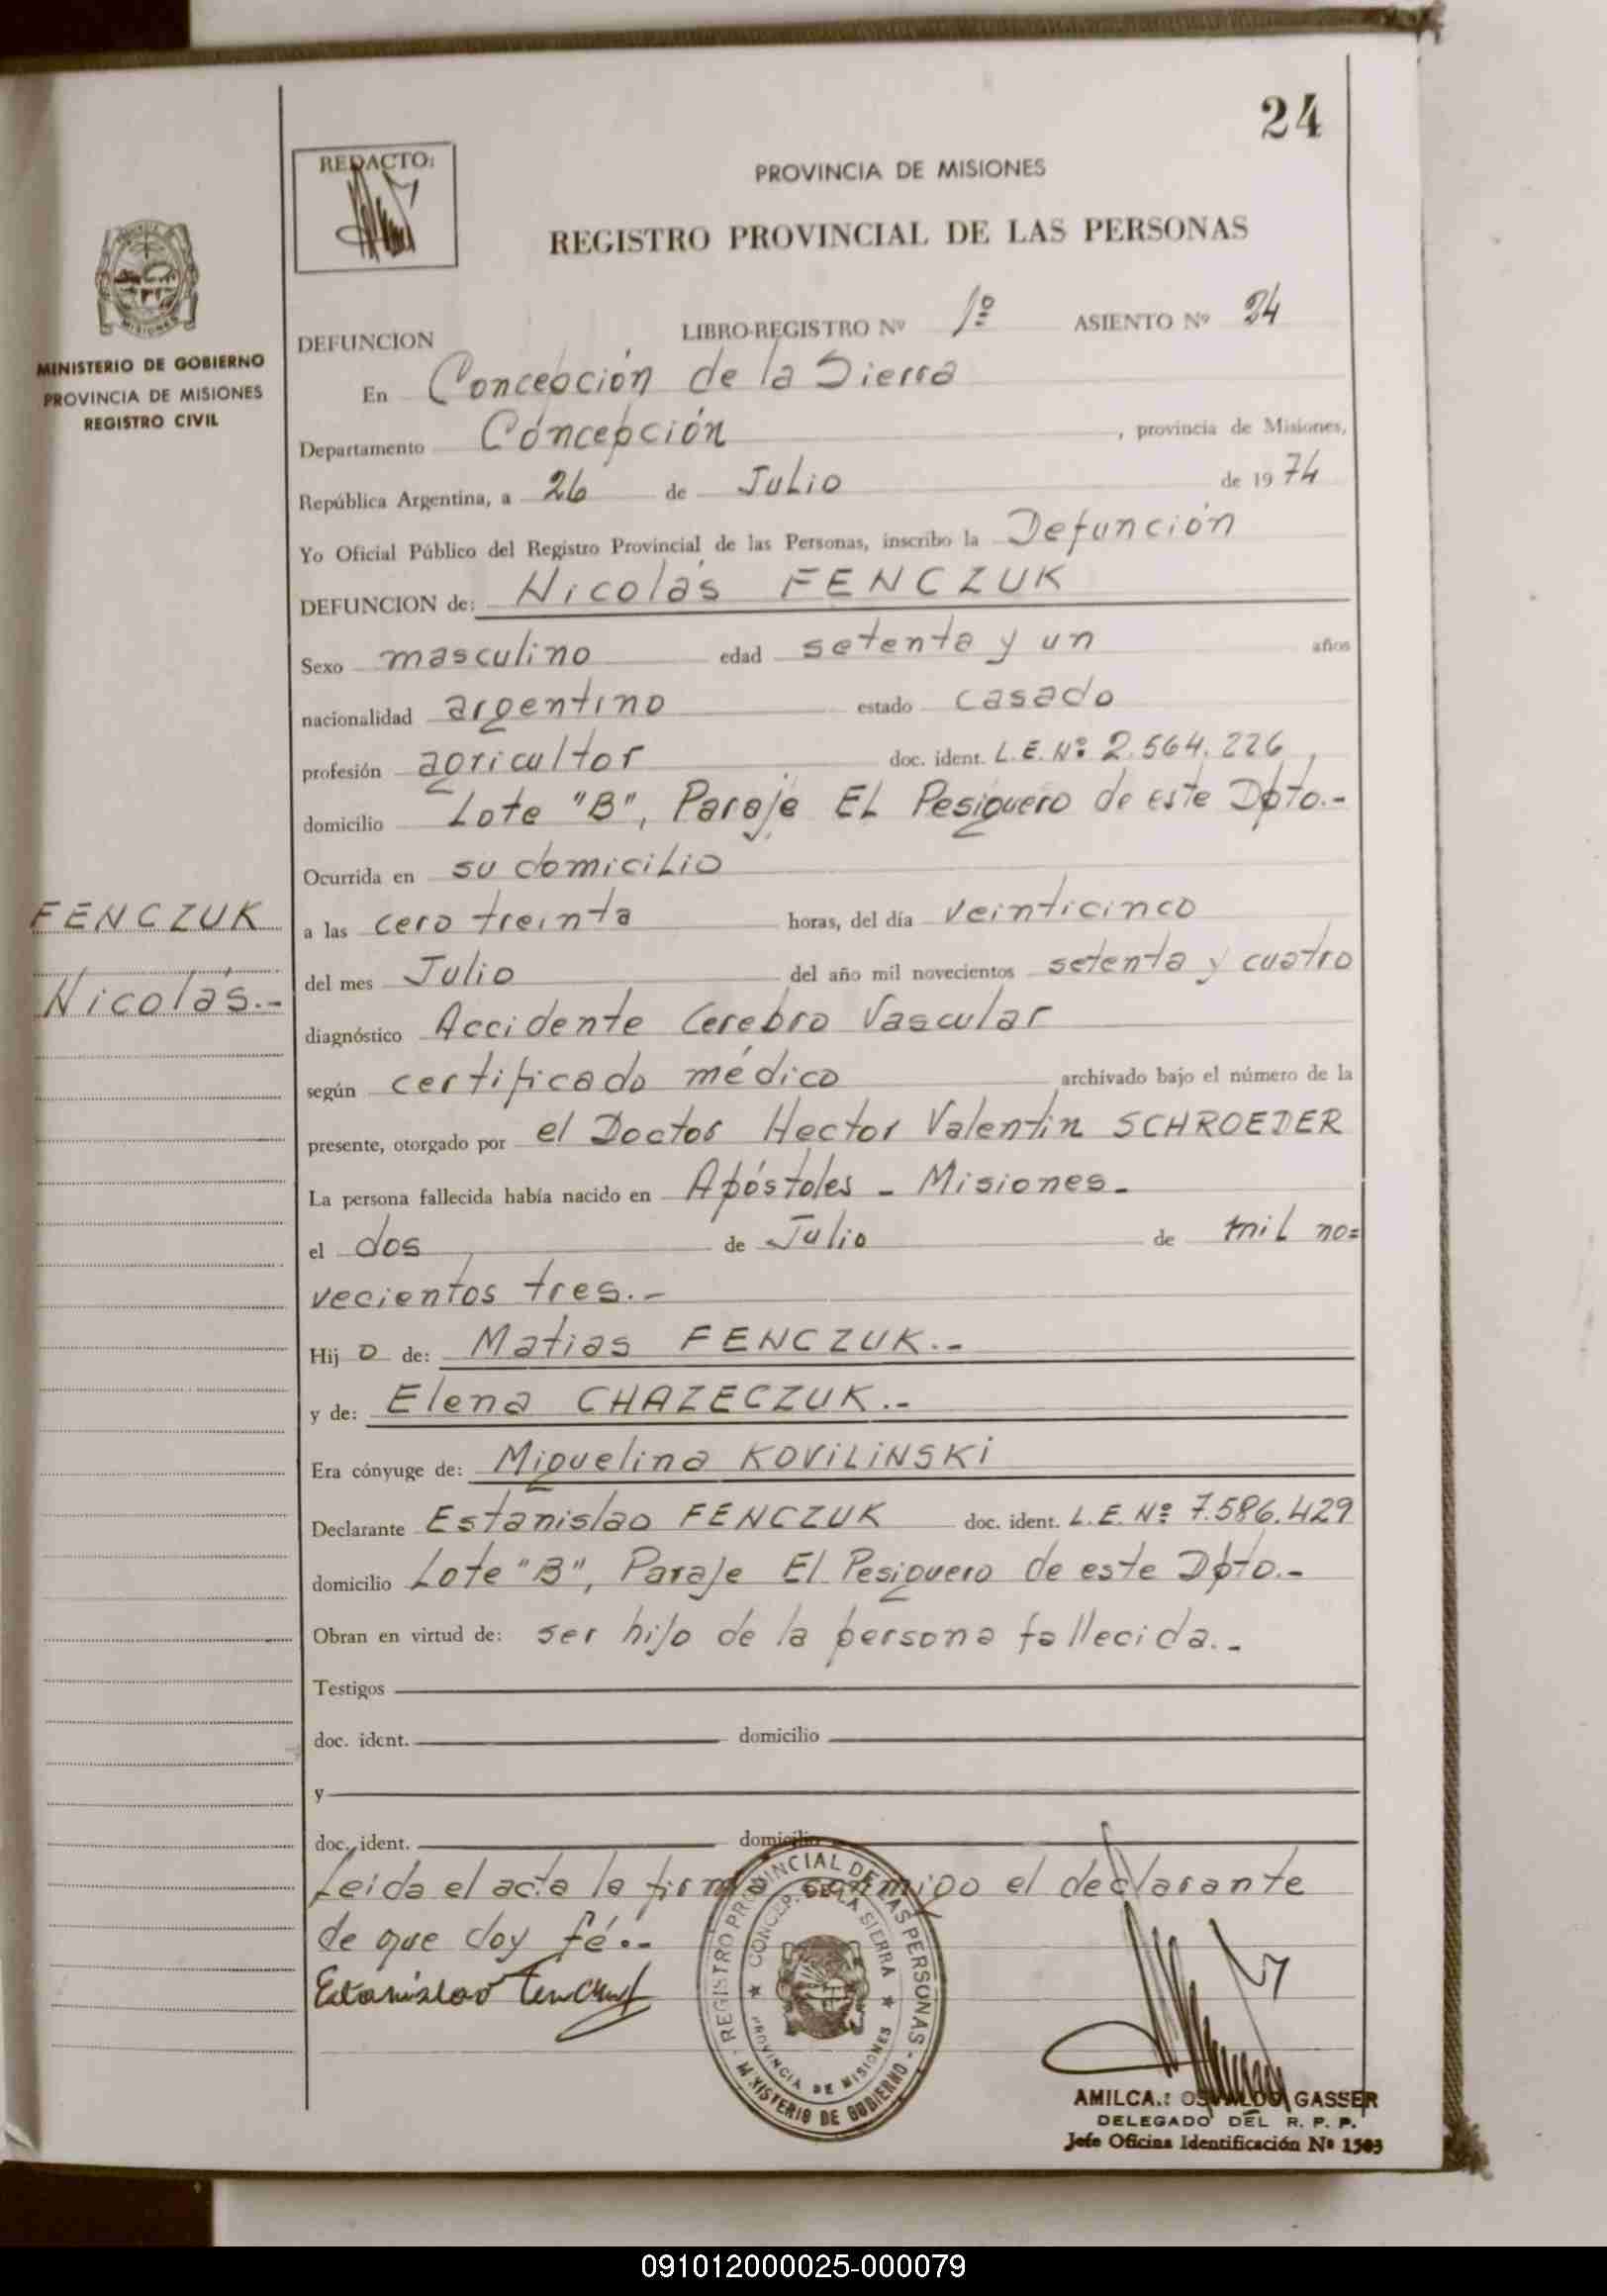 24
REDACTO:
PROVINCIA DE MISIONES
REGISTRO PROVINCIAL DE LAS PERSONAS
MISIONES
MINISTERIO DE GOBIERNO
PROVINCIA DE MISIONES
REGISTRO CIVIL
DEFUNCION LIBRO-REGISTRO Nº 1º ASIENTO Nº 24
En Concepción de la Sierra
Departamento Concepción , provincia de Misiones,
República Argentina, a 26 de Julio de 1974
Yo Oficial Público del Registro Provincial de las Personas, inscribo la Defunción
DEFUNCION de: Nicolás FENCZUK
Sexo masculino edad setenta y un años
nacionalidad argentino estado casado
profesión agricultor doc. ident. L.E. Nº 2.564.226,
domicilio Lote "B", Paraje EL Pesiguero de este Dpto.-
Ocurrida en su domicilio
FENCZUK
a las cero treinta horas, del día veinticinco
del mes Julio del año mil novecientos setenta y cuatro
Nicolás.-
diagnóstico Accidente Cerebro Vascular
según certificado médico archivado bajo el número de la
presente, otorgado por el Doctor Hector Valentín SCHROEDER
La persona fallecida había nacido en Apóstoles - Misiones-
el dos de Julio de mil no=
vecientos tres.-
Hijo de: Matias FENCZUK.-
y de: Elena CHAZECZUK.-
Era cónyuge de: Miguelina KOViLiNSKi
Declarante Estanislao FENCZUK doc. ident. L.E. Nº 7.586.429
domicilio Lote "B", Paraje El Pesiguero de este Dpto.-
Obran en virtud de: ser hijo de la persona fallecida.-
Testigos
doc. ident. domicilio
y
doc. ident. domicilio
Leida el acta la firma conmigo el declarante
de que doy fé.-
Estanislao Fenczuk
REGISTRO PROVINCIAL DE LAS PERSONAS
CONCEP. DE LA SIERRA
PROVINCIA DE MISIONES
MINISTERIO DE GOBIERNO
AMILCA.: OSVALDO GASSER
DELEGADO DEL R. P. P.
Jefe Oficina Identificación Nº 1503
091012000025-000079